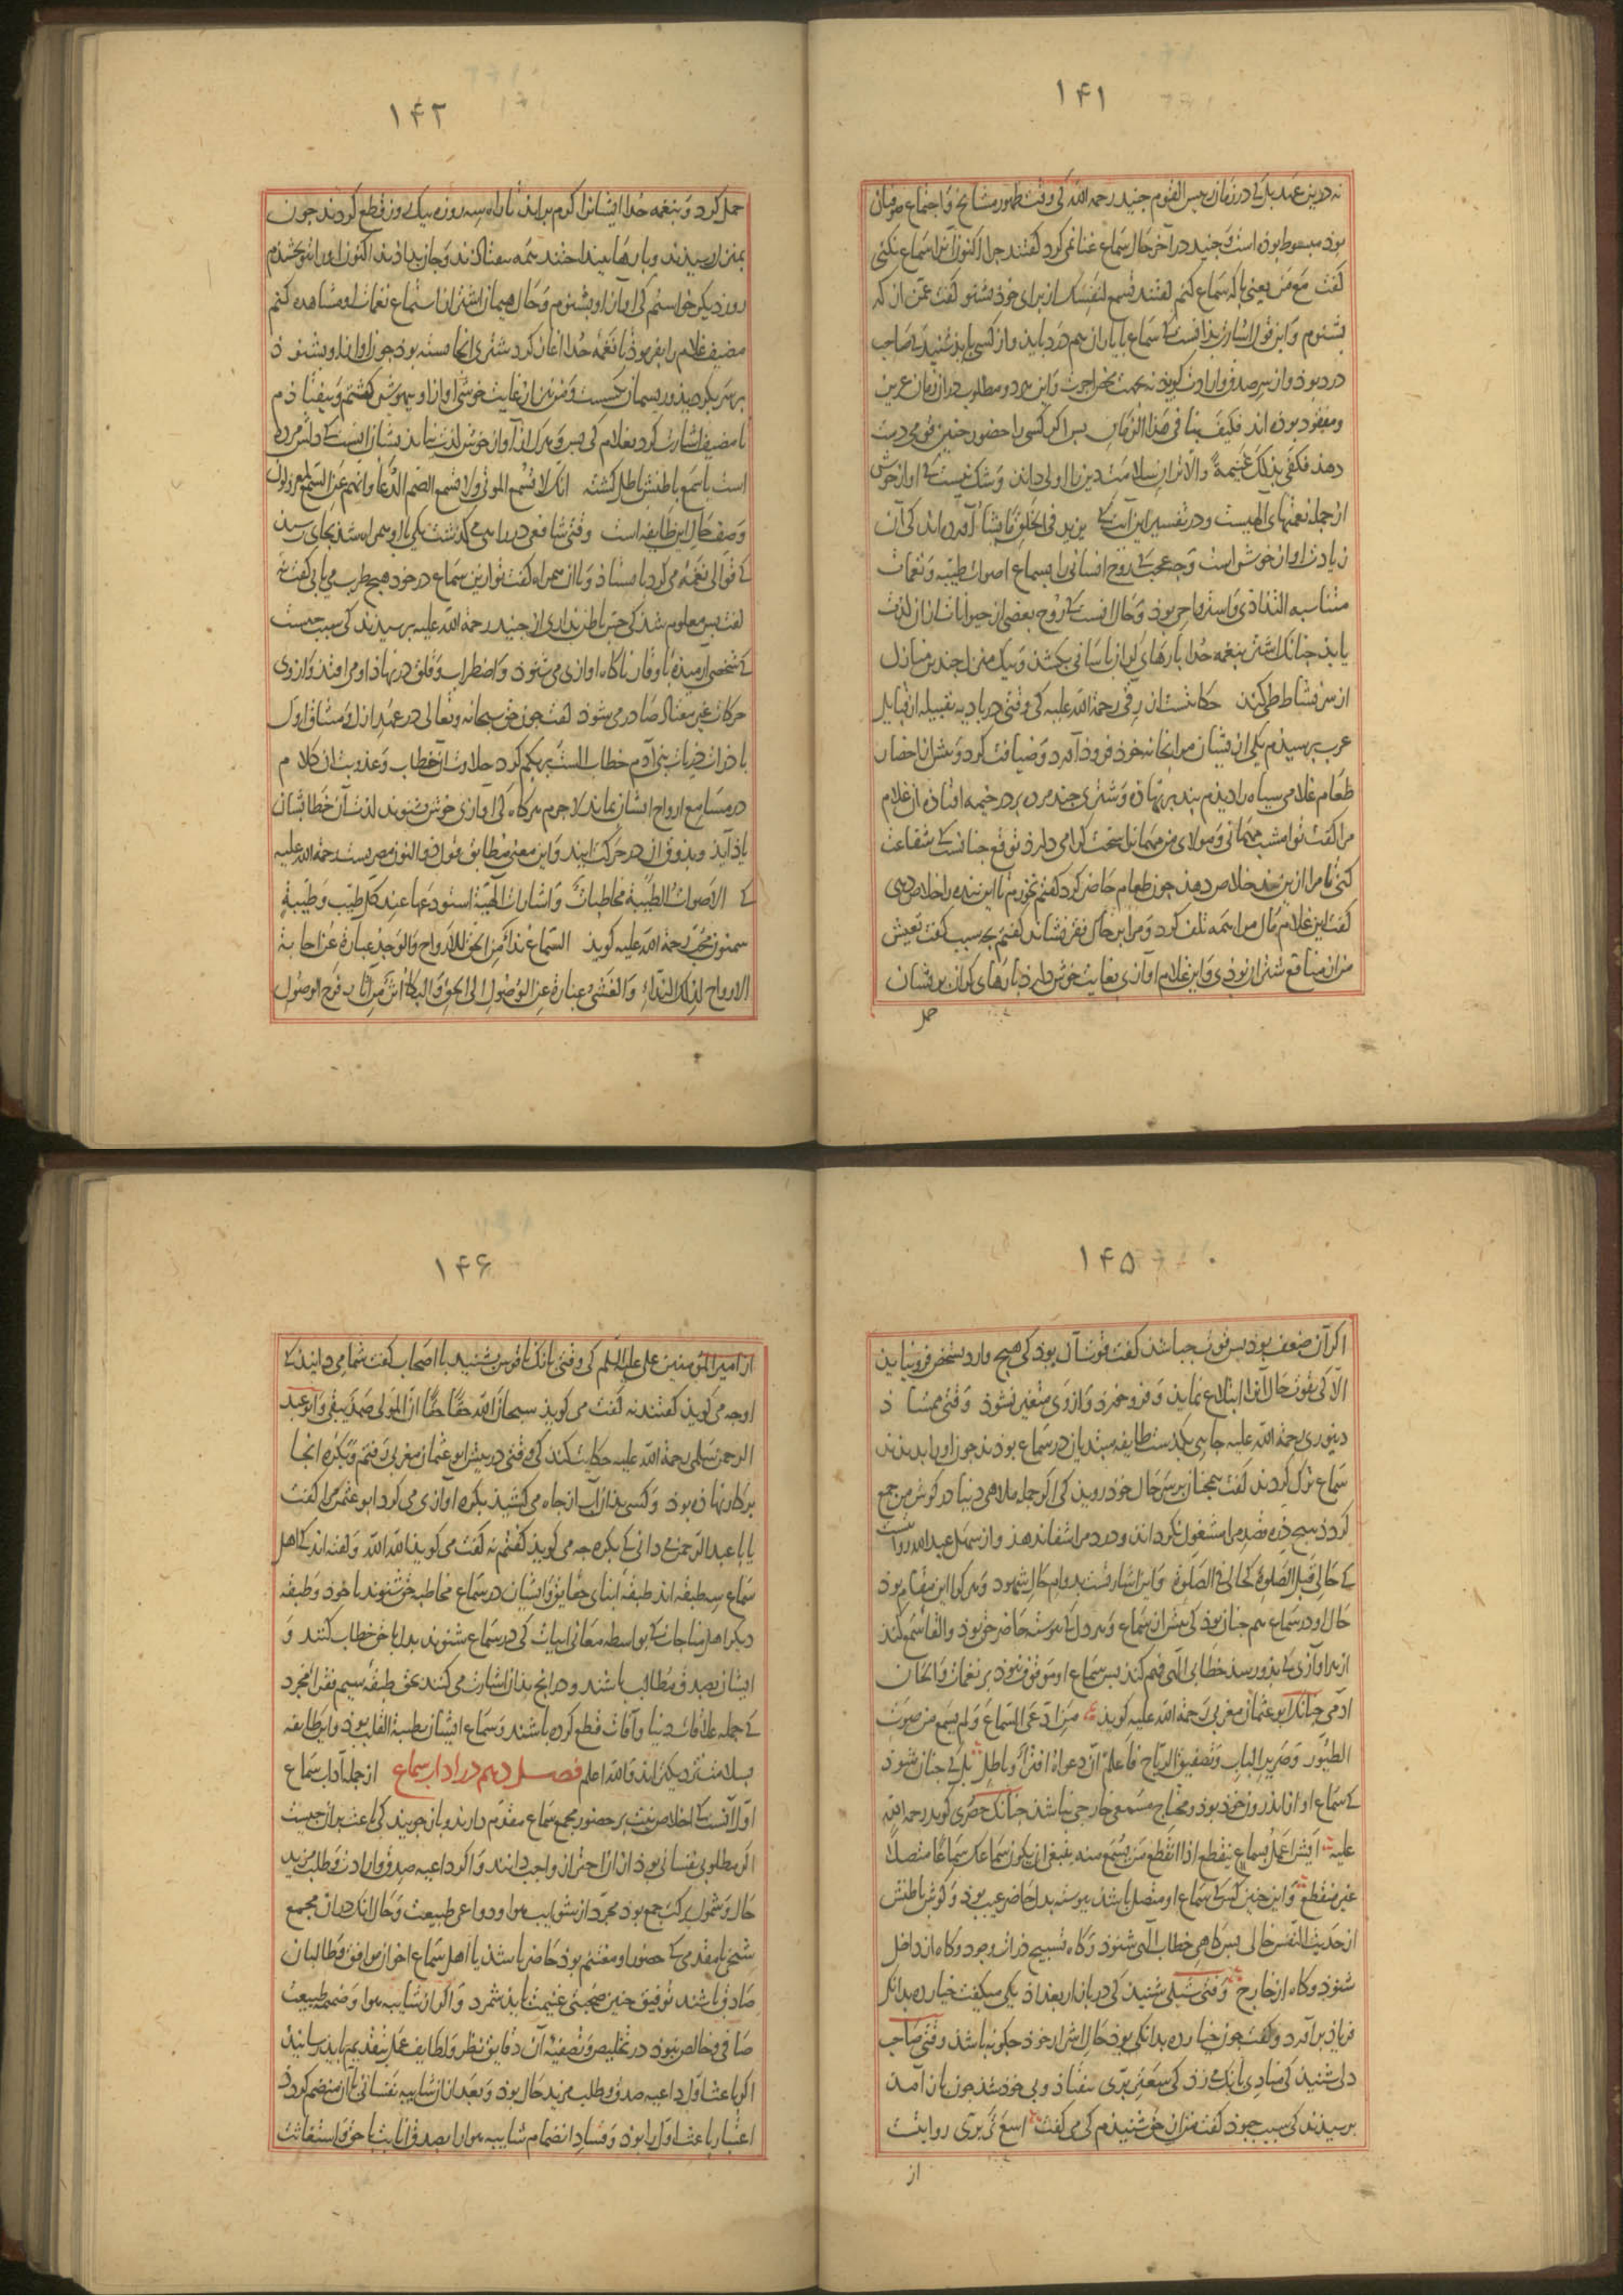 ۱۴۱
نه درین عهد بل کی در زمان رییس القوم جنید رحمه الله کی وقت ظهور مشایخ و اجتماع صوفیان
بود مبسوط بوده است و جنید در آخر حال سماع غنا نمی کرد گفتند چرا اکنون سماع نکنی
گفت مع من یعنی با که سماع کنم گفتند تسمع لنفسک از برای خود بشنو گفت عمن از که
بشنوم و این قول اشارت بدانست که سماع با یاران هم درد باید و از کسی باید شنید که صاحب
درد بود و از سر صدق و ارادت گوید نه بجهت اجرت و این هر دو مطلوب در آن زمان عزیز
و مفقود بوده اند فکیف بنا فی هذا الزمان پس اگر کسی را حضور چنین قومی دست
دهد فکفی بذلک غنیمة والا ترک سلامت دین را اولی داند و شک نیست که آواز خوش
از جمله نعمتهای الهیست و در تفسیر این آیت که یزید فی الخلق ما یشاء آورده اند کی آن
زیادت آواز خوش است و چه عجب که روح انسانی را بسماع اصوات طیبه و نغمات
متناسبه التذاذی و استرواحی بود و حال آنست که روح بعضی از حیوانات از آن لذت
یابد چنانک اشتر بنغمه حدا بارهای گران بآسانی بکشد و بیک منزل چند منازل
از سر نشاط طی کند حکایتست از رقی رحمة الله علیه کی وقتی در بادیه بقبیله از قبایل
عرب برسیدم یکی از ایشان مرا بخانه خود فرود آورد و ضیافت کرد و پیش از احضار
طعام غلامی سیاه را دیدم بند بر نهاده و شتری چند مرده بر در خیمه افتاده آن غلام
مرا گفت تو امشب مهمانی و مولای من مهمان را سخت گرامی دارد توقع چنانست که شفاعت
کنی تا مرا ازین بند خلاص دهد چون طعام حاضر کرد گفتم نخورم تا این بنده را خلاص دهی
گفت این غلام مال مرا همه تلف کرد و مرا بر خاک فقر نشاند گفتم بچه سبب گفت تعیش
من از منافع شتران بودی و این غلام آوازی بغایت خوش دارد بارهای گران بریشان
حمل
۱۴۲
حمل کرد و بنغمه حدا ایشانرا گرم براند تا راه سه روزه بیک روز قطع کردند چون
بمنزل رسیدند و بارها بینداختند همه بیفتادند و جان بدادند اکنون او را بتو بخشیدم
روز دیگر خواستم کی آواز او بشنوم و حال هیمان اشتر از استماع نغمات او مشاهده کنم
مضیف غلام را بفرمود تا نغمه حدا آغاز کرد شتری آنجا بسته بود چون آواز او بشنود
بر سر بگردید و ریسمان بگسست و من نیز از غایت خوشی آواز او بیهوش گشتم و بیفتادم
تا مضیف اشارت کرد بغلام کی بس و هرک از آواز خوش لذت نیابد نشان آنست که دلش مرده
است یا سمع باطنش باطل گشته انک لا تسمع الموتی ولا تسمع الصم الدعا و انهم عن السمع لمعزولون
وصف حال این طایفه است وقتی شافعی در راهی می گذشت یکی با او همراه شد بجای رسید
که قوالی نغمه می کرد بایستاد و با آن همراه گفت تو ازین سماع در خود هیچ طرب می یابی گفت نه
گفت پس معلوم شد کی حس باطن نداری از جنید رحمة الله علیه پرسیدند کی سبب چیست
که شخصی آرمیده با وقار ناگاه آوازی می شنود و اضطراب و قلق در نهاد او می افتد و از وی
حرکات غیر معتاد صادر می شود گفت چون حق سبحانه و تعالی در عهد ازل و میثاق اول
با ذرات ذریات بنی آدم خطاب الست بربکم کرد حلاوت آن خطاب و عذوبت آن کلام
در مسامع ارواح ایشان بماند لاجرم هرگاه کی آوازی خوش بشنوند لذت آن خطابشان
یاد آید و بذوق آن در حرکت آیند و این معنی مطابق قول ذوالنون مصریست رحمة الله علیه
که الاصوات الطیبة مخاطبات و اشارات الهیة استودعها عند کل طیب و طیبة
سمنون محب رحمة الله علیه گوید السماع نداء من الحق للارواح والوجد عبارة عن اجابة
الارواح لذلک النداء والغشی عبارة عن الوصول الی الحق والبکاء اثر من آثار فرح الوصول
۱۴۵
اگر آن ضعف بود پس قوت چه باشد گفت قوت آن بود کی هیچ وارد بشخص فرو نیاید
الا کی بقوت حال آنرا ابتلاع نماید و فرو خورد و از وی متغیر نشود وقتی ممشاد
دینوری رحمة الله علیه جایی بگذشت طایفه مبتدیان در سماع بودند چون او را بدیدند
سماع ترک کردند گفت همچنان بر سر حال خود روید کی اگر جمله ملاهی دنیا در گوش من جمع
گردد هیچ ذره قصد مرا مشغول نگرداند و درد مرا شفا ندهد و از سهل عبدالله روایتست
که حالی قبل الصلوة کحالی فی الصلوة و این اشارتست بدوام حال شهود و هر کرا این مقام بود
حال او در سماع هم چنان بود کی پیش از سماع و هر دل کی پیوسته حاضر حق بود و القاء سمع کند
از هر آوازی که بدو رسد خطابی الهی فهم کند پس سماع او موقوف نبود بر نغمات و الحان
آدمی چنانک ابو عثمان مغربی رحمة الله علیه گوید من ادعی السماع و لم یسمع من صوت
الطیور و صریر الباب و تصفیق الریاح فاعلم ان دعواه افترا و باطل بل کی چنان شود
که سماع او از اندرون خود بود و محتاج مسمعی خارجی نباشد چنانک حصری گوید رحمة الله
علیه ایش اعمل بسماع ینقطع اذا انقطع من یسمع منه ینبغی ان یکون سماعک سماعا متصلا
غیر منقطع و این چنین کس که سماع او متصل باشد پیوسته بدل حاضر غیب بود و گوش باطنش
از حدیث النفس خالی پس گاهی خطاب الهی شنود و گاه تسبیح ذرات وجود و گاه از داخل
شنود و گاه از خارج وقتی شبلی شنید کی در بازار بغداد یکی میگفت خیار ده بدانگی
فریاد برآورد و گفت چون خیار ده بدانگی بود حال اشرار خود چگونه باشد وقتی صاحب
دلی شنید کی منادی بانگ می زد کی سعتر بری بیفتاد و بی خود شد چون باز آمد
پرسیدند کی سبب چه بود گفت من از حق شنیدم کی می گفت اسع تر بری روایت
از
۱۴۶
از امیر المؤمنین علی علیه السلم کی وقتی بانگ ناقوس بشنید با اصحاب گفت شما می دانید که
او چه می گوید گفتند نه گفت می گوید سبحان الله حقا حقا ان المولی صمد یبقی و ابو عبد
الرحمن سلمی رحمة الله علیه حکایت کند کی وقتی در پیش ابو عثمان مغربی رفتم و بکره آنجا
بر کار نهاده بود و کسی بدان آب از چاه می کشید بکره آوازی می کرد ابو عثمن مرا گفت
یا با عبد الرحمن می دانی که بکره چه می گوید گفتم نه گفت می گوید الله الله و گفته اند که اهل
سماع سه طبقه اند طبقه ابنای حقایق و ایشان در سماع مخاطبه حق شنوند با خود و طبقه
دیگر اهل مناجات که بواسطه معانی ابیات کی در سماع شنوند بدل با حق خطاب کنند و
ایشان بصدق مطالب باشند و در آنچ بدان اشارت می کنند بحق طبقه سیم فقراء مجرد
که جمله علاقات دنیا و آفات قطع کرده باشند و سماع ایشان بطیبة القلب بود و این طایفه
بسلامت نزدیکتر اند والله اعلم فصل دهم در آداب سماع از جمله آداب سماع
اول آنست که اخلاص نیت بر حضور مجمع سماع مقدم دارند و باز جویند کی باعث بر آن چیست
اگر مطلوبی نفسانی بود از آن احتراز واجب دانند و اگر داعیه صدق و ارادت و طلب مزید
حال و شمول برکت جمع بود مجرد از شوایب هوا و دواعی طبیعت و حال آنک در آن مجمع
شیخی یا مقدمی که حضور او مغتنم بود حاضر باشد یا اهل سماع اخوان موافق و طالبان
صادق باشند توفیق چنین صحبتی غنیمت باید شمرد و اگر از شایبه هوا و ضمیمه طبیعت
صافی و خالص نبود در تخلیص و تصفیه آن دقایق نظر و لطایف عمل بتقدیم باید رسانید
اگر باعث اول داعیه صدق و طلب مزید حال بود و بعد از آن شایبه نفسانی با آن منضم گردد
اعتبار باعث اول را بود و فساد انضمام شایبه هوا را بصدق انابت با حق و استغاثت